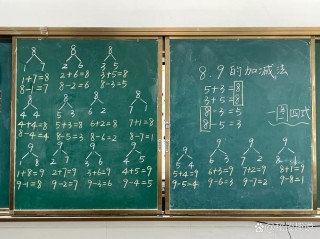 8 8 8
1 7 2 6 3 5
1+7=8 2+6=8 3+5=8
8-1=7 8-2=6 8-3=5
8 8 8 8
4 4 5 3 6 2
4+4=8 5+3=8 6+2=8 7+1=8
8-4=4 8-5=3 8-7=1
9 9 9 9
1 8 2 7 3 6 4 5
1+8=9 2+7=9 3+6=9 4+5=9
9-1=8 9-2=7 9-3=6 9-4=5
8、9的加减法
5+3=8
3+5=8
8-3=5
8-5=3
一图四式
9 9 9 9
5 4 6 3 7 2 8 1
5+4=9 6+3=9 7+2=9 8+1=9
9-5=4 9-6=3 9-7=2 9-8=1